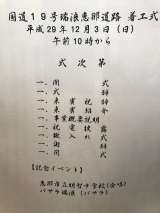 国道19号瑞浪恵那道路 着工式
平成29年12月3日(日)
午前10時から
式次第
一、開式
一、式辞
一、来賓祝辞
一、来賓紹介
一、事業概要説明
一、祝電披露
一、鍬入れ式
一、閉式
【記念イベント】
恵那市立明智中学校(合唱)
バサラ瑞浪(バサラ)